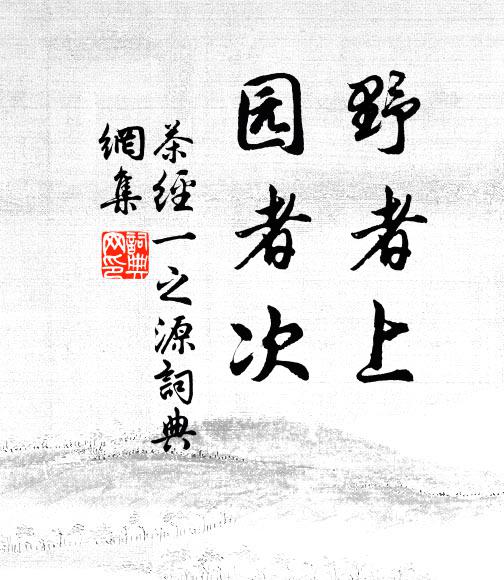 野者上
园者次
茶經一之源詞典
網集
詞典
网印